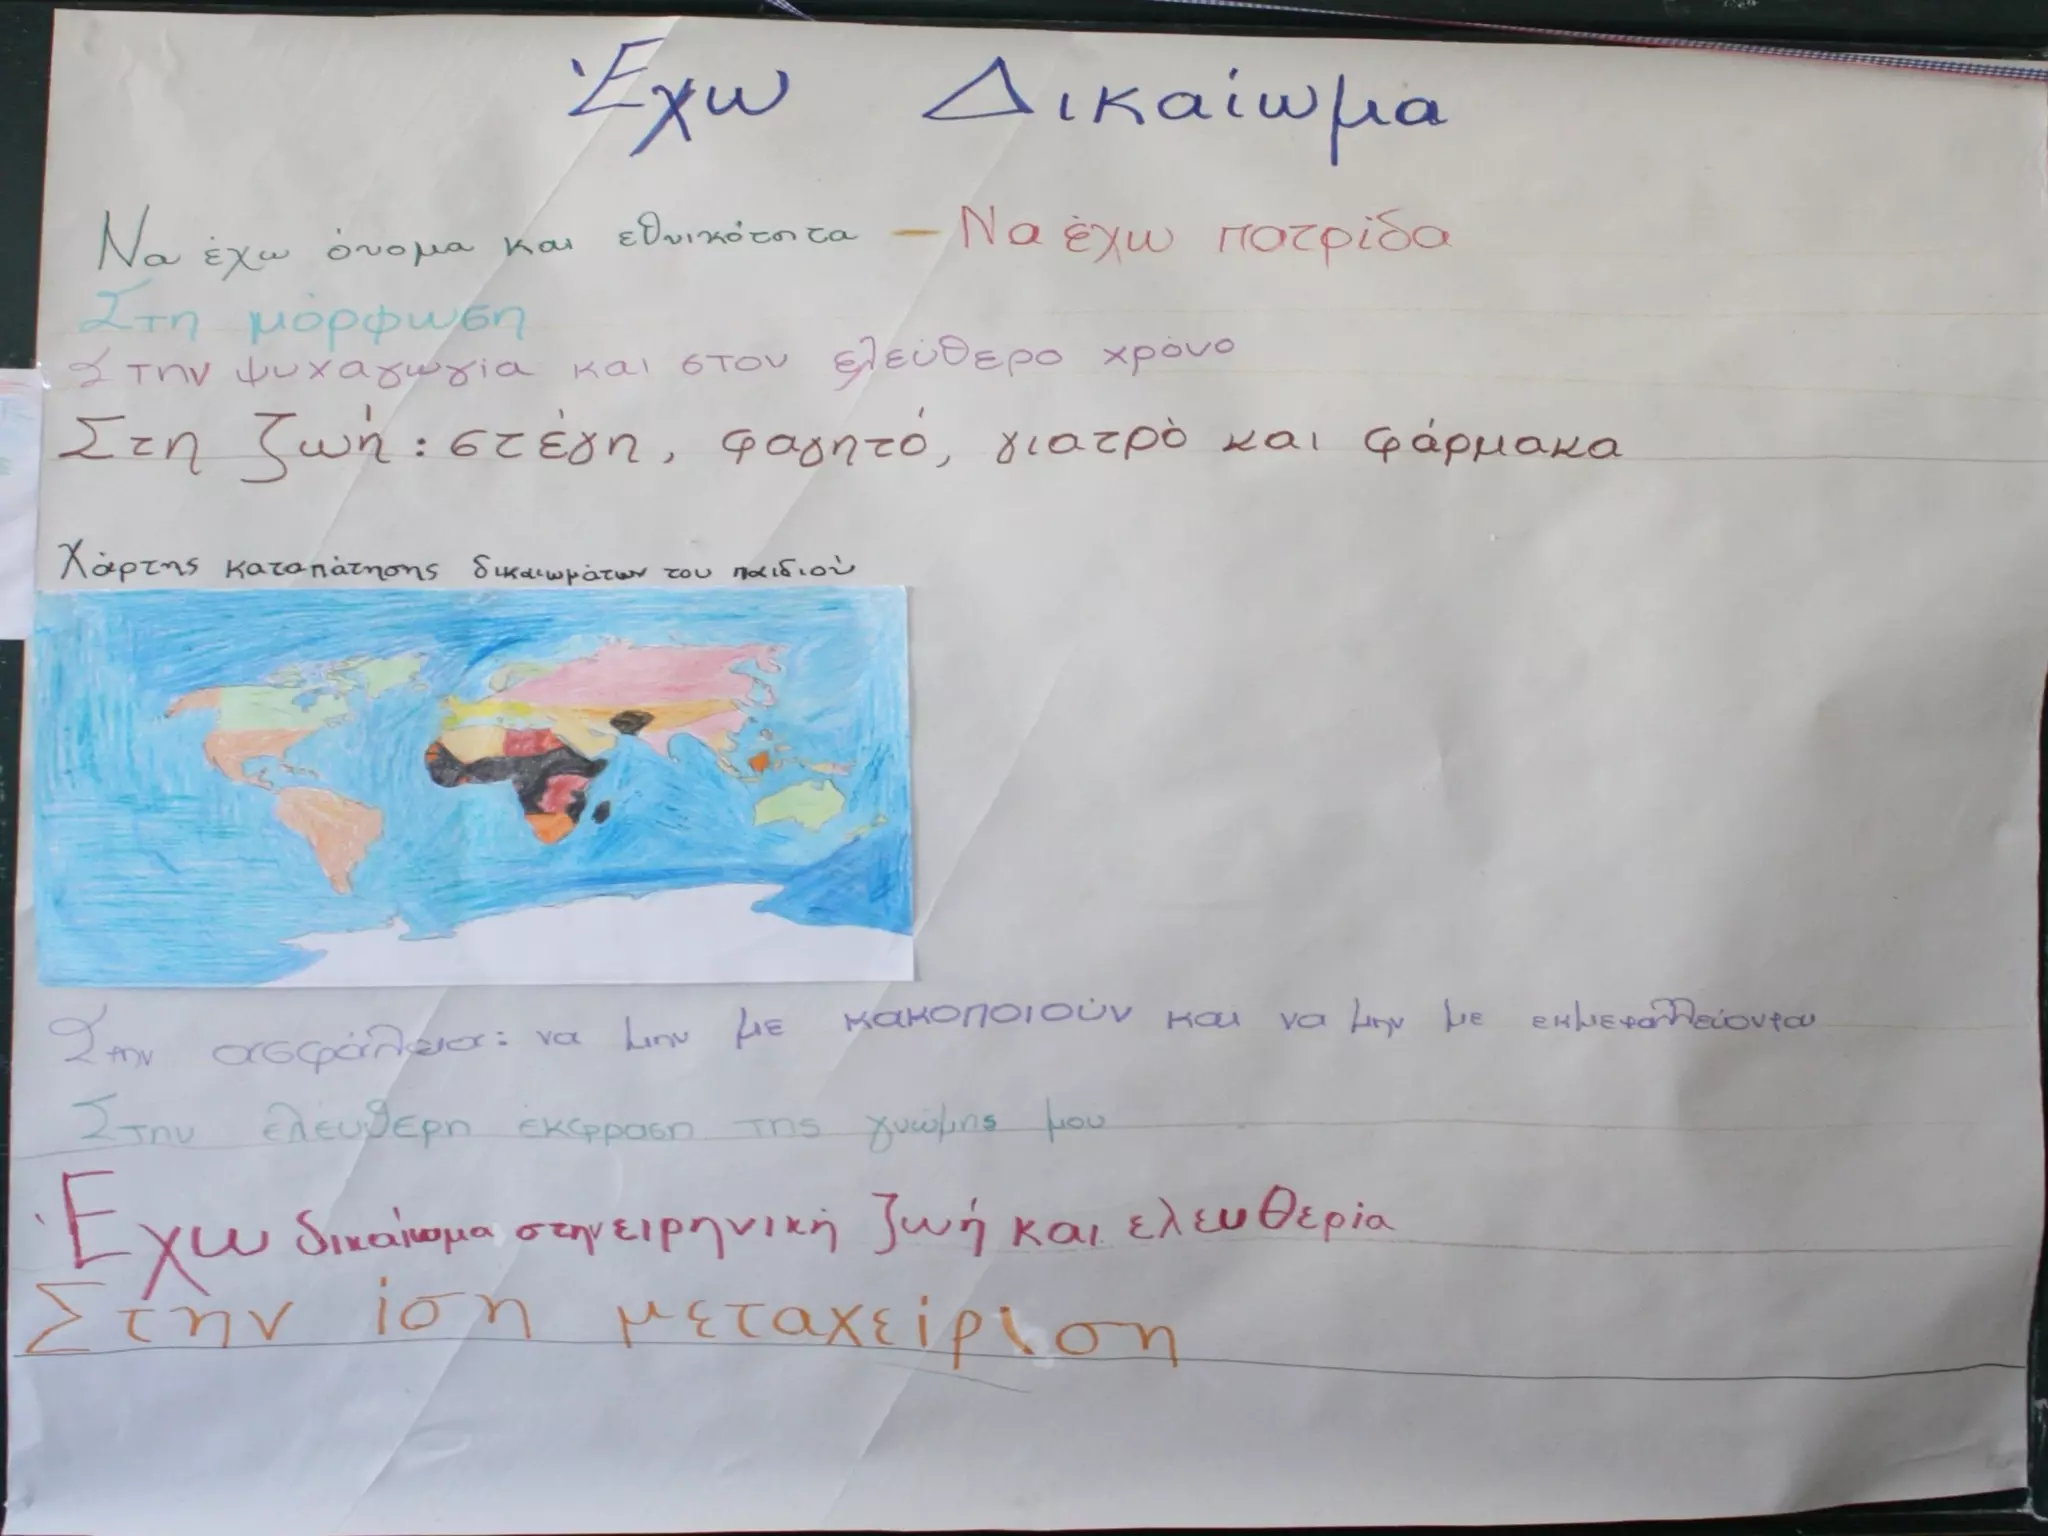 Έχω Δικαίωμα
Να έχω όνομα και εθνικότητα - Να έχω πατρίδα
Στη μόρφωση
Στην ψυχαγωγία και στον ελεύθερο χρόνο
Στη ζωή: στέγη, φαγητό, γιατρό και φάρμακα
Χάρτης καταπάτησης δικαιωμάτων του παιδιού
Στην ασφάλεια: να μην με κακοποιούν και να μην με εκμεταλλεύονται
Στην ελεύθερη έκφραση της γνώμης μου
Έχω δικαίωμα στην ειρηνική ζωή και ελευθερία
Στην ίση μεταχείριση